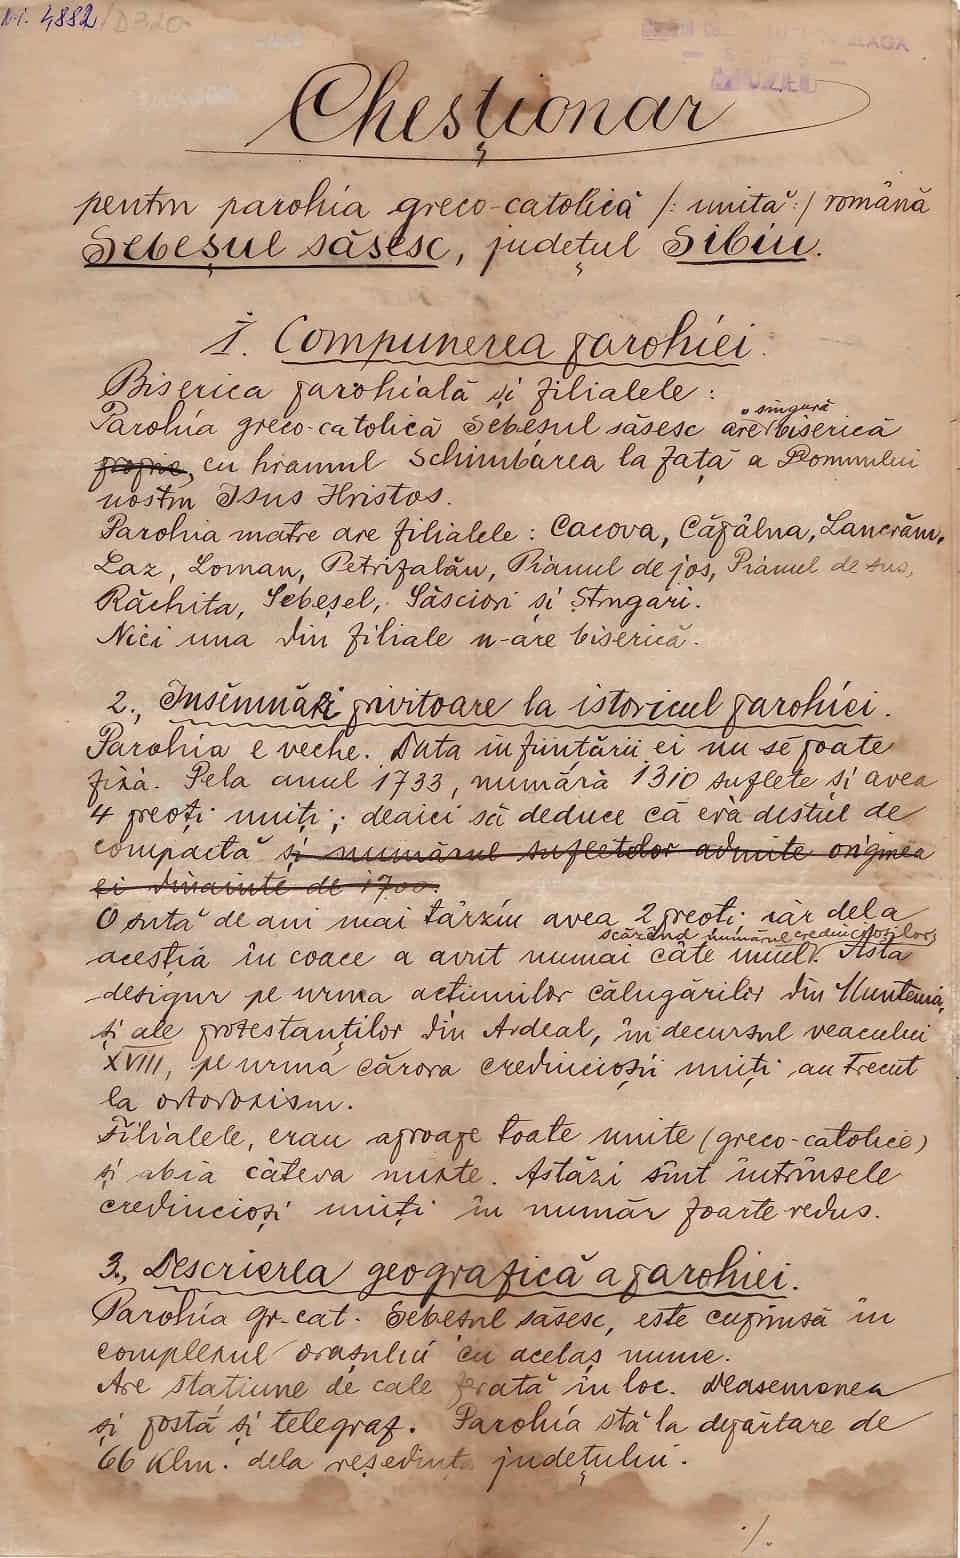 Nr. 4882/D320
MUZEU
Chesționar
pentru parohia greco-catolică /: unită :/ română
Sebeșul săsesc, județul Sibiu.
1. Compunerea parohiei.
Biserica parohială și filialele :
singură
Parohia greco-catolică Sebeșul săsesc are biserică
proprie, cu hramul Schimbarea la față a Domnului
nostru Isus Hristos.
Parohia matre are filialele : Cacova, Căpâlna, Lancrăm,
Laz, Loman, Petrifalău, Pianul de jos, Pianul de sus,
Răchita, Sebeșel, Săsciori și Strugari.
Nici una din filiale n-are biserică.
2., Însemnări privitoare la istoricul parohiei.
Parohia e veche. Data înființării ei nu sĕ poate
fixà. Pela anul 1733, număra 1310 suflete și avea
4 preoți uniți; deaici să deduce că erà destul de
compactă și numărul sufletelor admite originea
ei dinainte de 1700.
O sută de ani mai târziu avea 2 preoți; iàr dela
scăzând numărul credincioșilor,
aceștia încoace a avut numai câte unul. Asta
desigur pe urma acțiunilor călugărilor din Muntenia,
și ale protestanților din Ardeal, în decursul veacului
XVIII, pe urma cărora credincioșii uniți au trecut
la ortodoxism.
Filialele, erau aproape toate unite (greco-catolice)
și abia câteva mixte. Astăzi sînt întrînsele
credincioși uniți în număr foarte redus.
3., Descrierea geografică a parohiei.
Parohia gr-cat. Sebeșul săsesc, este cuprinsă în
complexul orașului cu acelaș nume.
Are stațiune de cale ferată în loc. Deasemenea
și poștă și telegraf. Parohia stă la depărtare de
66 Klm. dela reședința județului.
./.